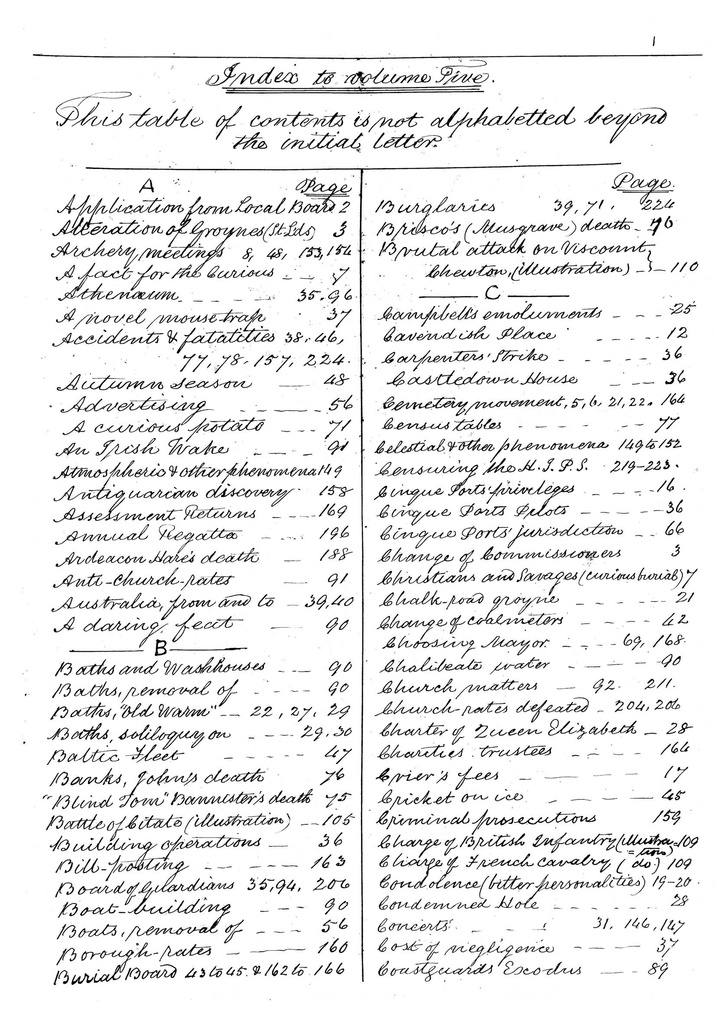 1
Index to volume Five.
This table of contents is not alphabetted beyond
the initial letter.
A Page
Application from Local Board 2
Alteration of Groynes (St. Lds) 3
Archery meetings 8, 48, 153, 154
A fact for the Curious - - 7
Athenæum - - - 35.96
A novel mouse-trap 37
Accidents & fatalities 38, 46,
77, 78, 157, 224.
Autumn season - 48
Advertising - - - 56
A curious potato - - 71
An Irish Wake - - 91
Atmospheric & other phenomena 149
Antiquarian discovery 158
Assessment Returns - - 169
Annual Regatta - - 196
Ardeacon Hare's death - - 188
Anti-church-rates 91
Australia, from and to - 39,40
A daring feat - - 90
B
Baths and Washhouses - - - 90
Baths, removal of - - - - 90
Baths, "Old Warm" - - 22, 27, 29
Baths, soliloquy on - - - 29,30
Baltic Fleet - - - 47
Banks, John's death 76
"Blind Tom" Bannister's death 75
Battle of Citate (illustration) - - 105
Building operations - - 36
Bill-posting - - - 163
Board of Guardians 35,94, 206
Boat-building - - - 90
Boats, removal of - - - 56
Borough-rates - 160
Burial Board 43 to 45. & 162 to 166
Page.
Burglaries 39, 71. 224
Brisco's (Musgrave) death - 76
Brutal attack on Viscount
Chewton, (illustration) - } - 110
C
Campbell's emoluments - - - 25
Cavendish Place - - - 12
Carpenters' Strike - - - - 36
Castledown House 36
Cemetery movement, 5, 6, 21, 22. 164
Census tables - - - - - 77
Celestial & other phenomena 149 to 152
Censuring the H.I.P.S. 219-223.
Cinque Ports' priveleges - - - 16.
Cinque Ports Pilots - - - 36
Cinque Ports' jurisdiction - - 66
Change of Commissioners 3
Christians and Savages (curious burial) 7
Chalk-road groyne - - - - 21
Change of coalmeters - - - 42
Choosing Mayor. - - 69, 168.
Chalibeate water - - - - 90
Church matters - 92. 211.
Church-rates defeated - 204, 206
Charter of Queen Elizabeth - 28
Charities trustees - - - 164
Crier's fees - - - - 17
Cricket on ice - - - - 45
Criminal prosecutions 159
Charge of British Infantry (illustra- 109
=tion)
Charge of French cavalry (do) 109
Condolence (bitter personalities) 19-20.
Condemned Hole - - - 28
Concerts 31, 146, 147
Cost of negligence - - - 37
Coastguards' Exodus - - - 89